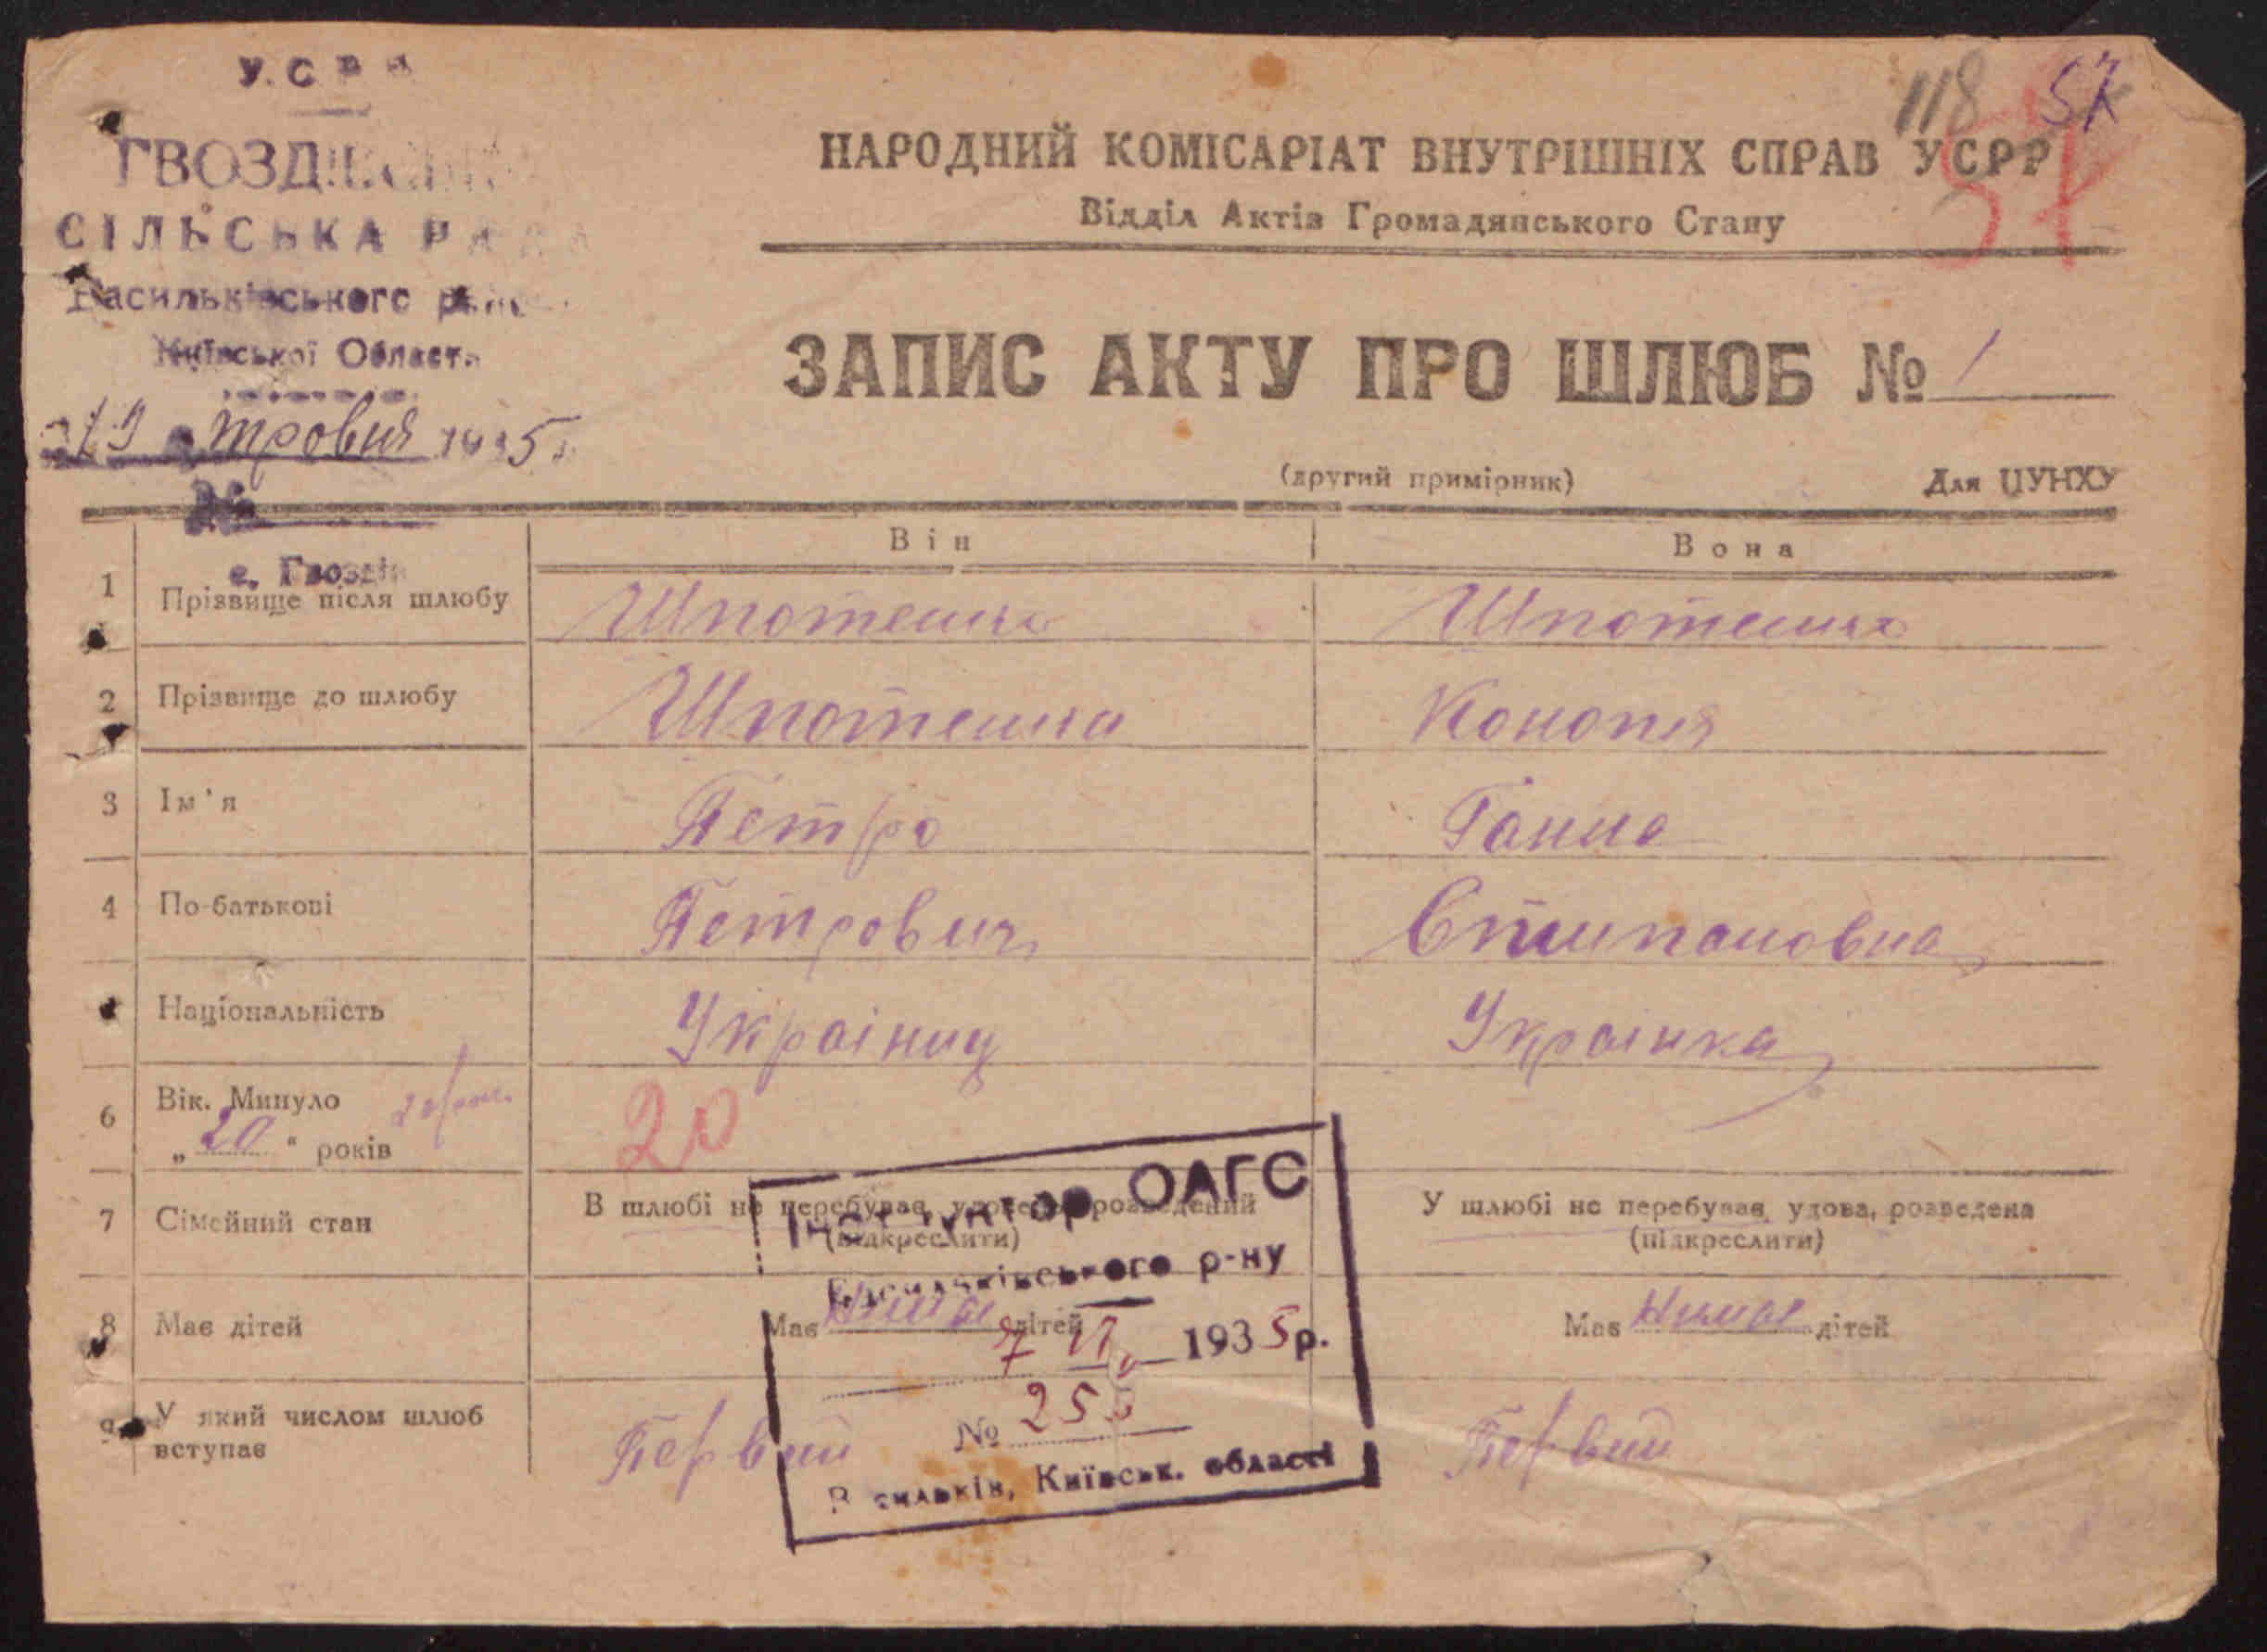 У.С.Р.Р.
ГВОЗДІВСЬКА
СІЛЬСЬКА РАДА
Васильківського району
Київської Області
19 травня 1935 р.
№
с. Гвоздів
118 57
57
НАРОДНИЙ КОМІСАРІАТ ВНУТРІШНІХ СПРАВ УСРР
Відділ Актів Громадянського Стану
ЗАПИС АКТУ ПРО ШЛЮБ № 1
(другий примірник) Для ЦУНХУ
Він Вона
1 Прізвище після шлюбу Шпотенко Шпотенко
2 Прізвище до шлюбу Шпотенко Конопля
3 Ім'я Петро Ганна
4 По-батькові Петрович Степановна
Національність Україниц Українка
6 Вік. Минуло
„20“ років 20
7 Сімейний стан В шлюбі не перебував, удовець, розведений У шлюбі не перебував, удова, розведена
(підкреслити) (підкреслити)
8 Має дітей Має нимає дітей Має нимає дітей
9 У який числом шлюб
вступає Первий Первий
Інспектор ОАГС
Васильківського р-ну
7 VI 1935 р.
№ 255
Васильків, Київськ. області